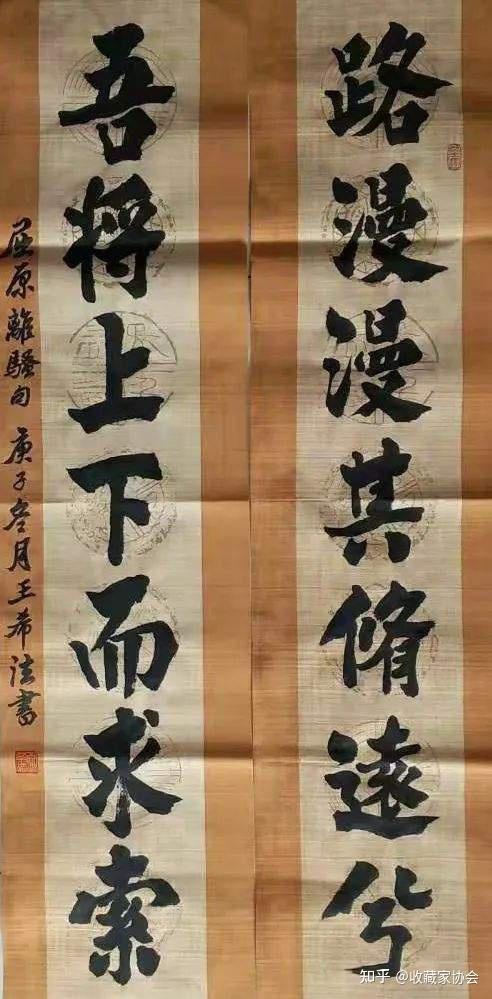 路漫漫其脩遠兮
吾將上下而求索
屈原離騷句 庚子叁月王希法書
知乎 @收藏家协会